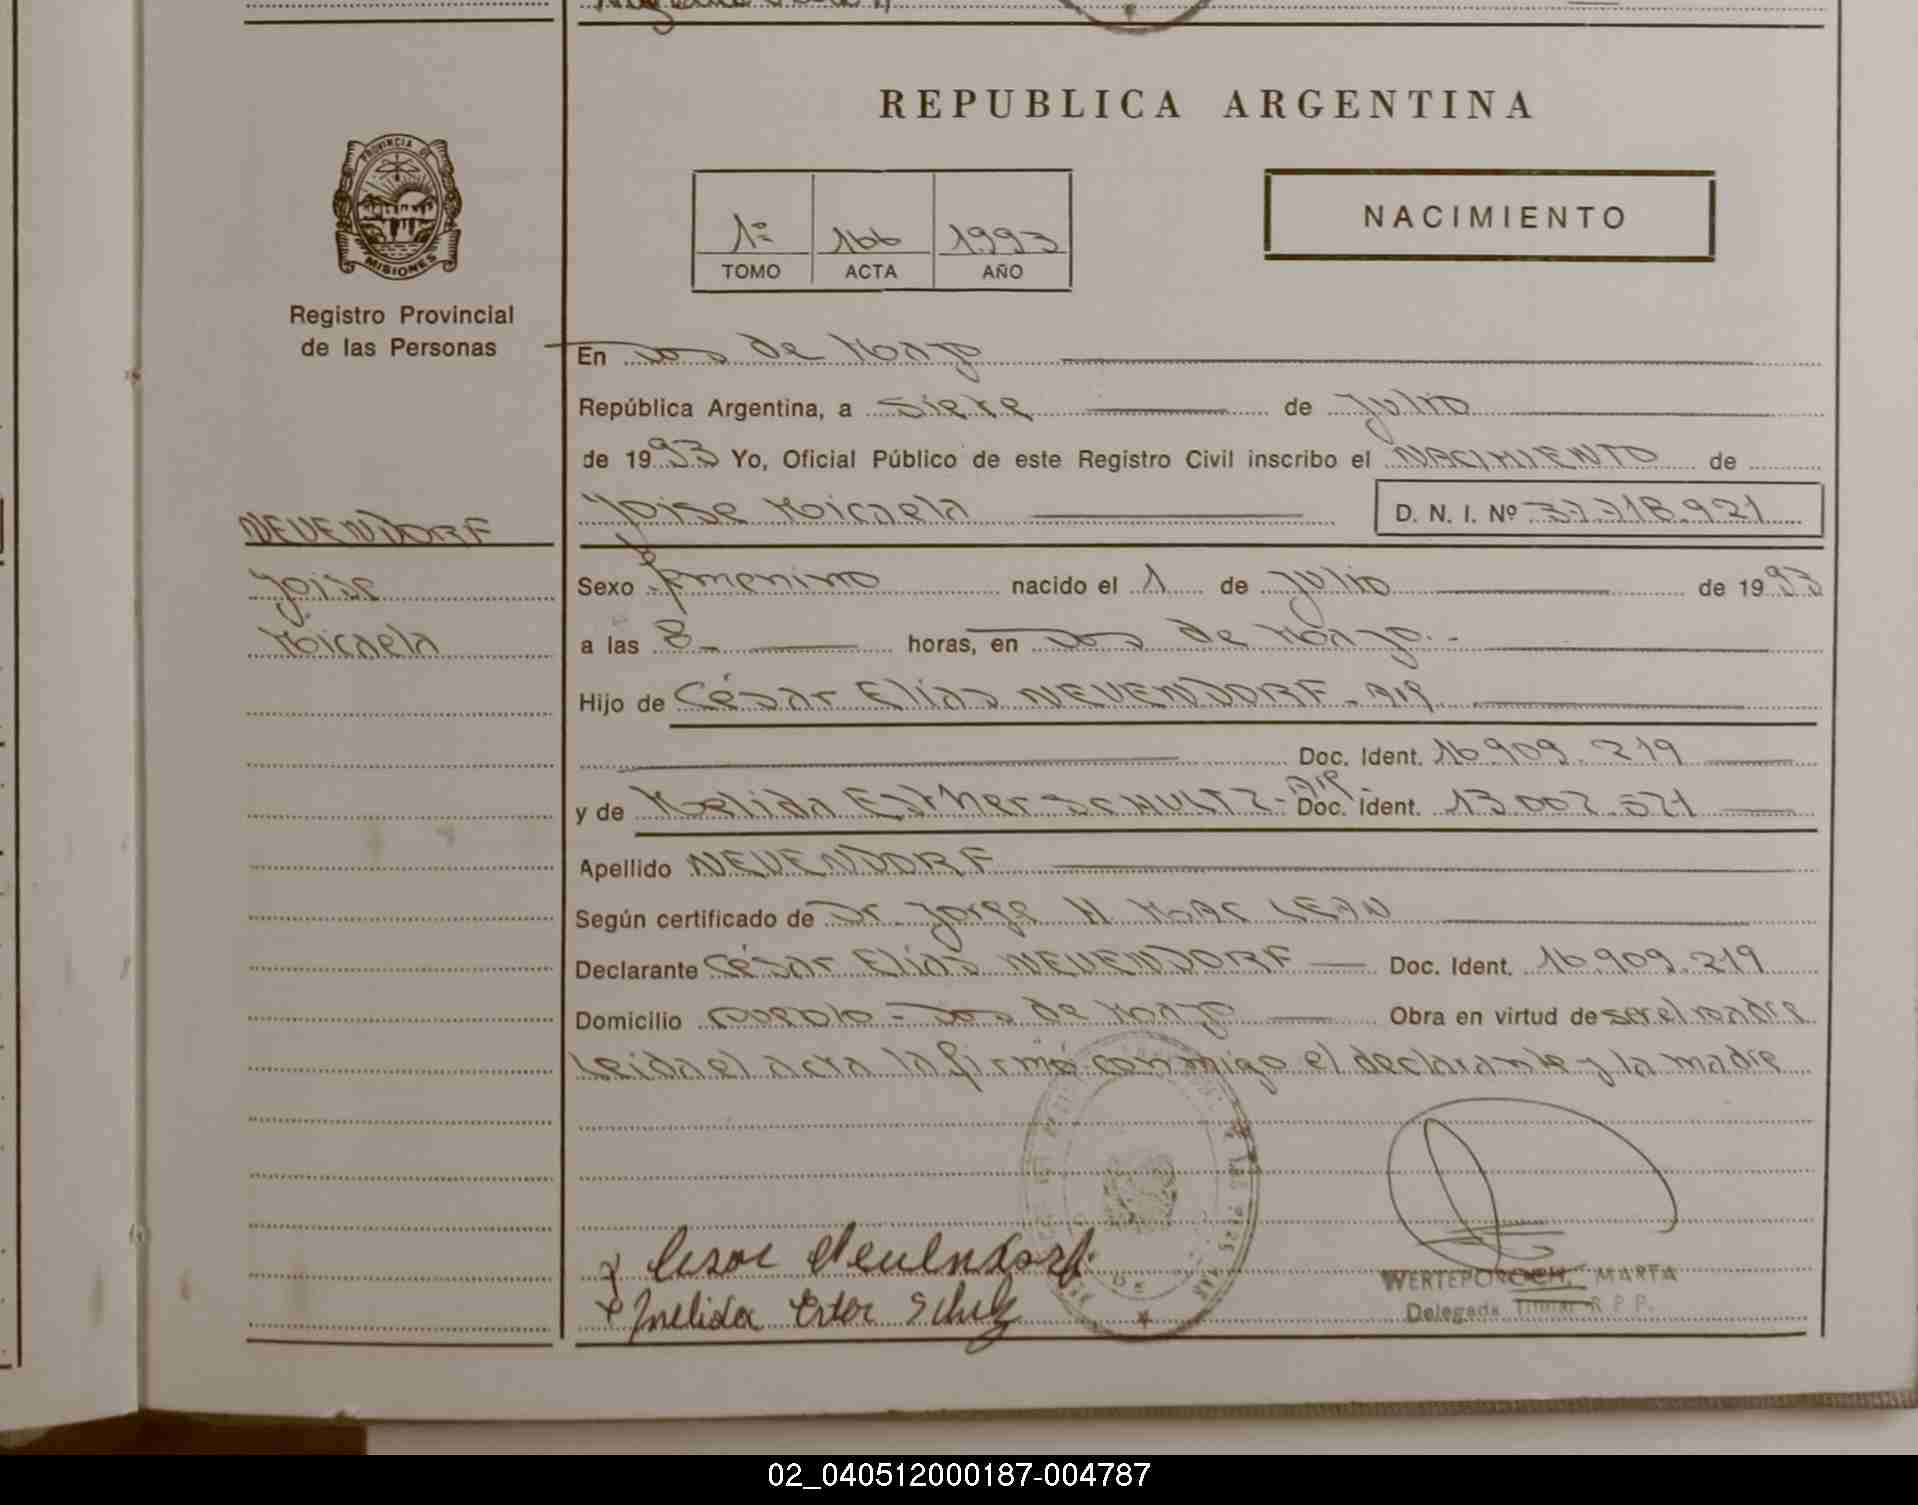 REPUBLICA ARGENTINA
PROVINCIA DE MISIONES
Registro Provincial
de las Personas
NACIMIENTO
1º 166 1993
TOMO ACTA AÑO
En Dos de Mayo
República Argentina, a siete de Julio
de 1993 Yo, Oficial Público de este Registro Civil inscribo el NACIMIENTO de
Yoise Micaela D. N. I. Nº 37.718.921
NEUENDORF
Yoise
Micaela
Sexo femenino nacido el 1 de Julio de 1993
a las 8 horas, en Dos de Mayo.-
Hijo de César Elías NEUENDORF - Arg
Doc. Ident. 16.909.219
y de Nelida Esther SCHULTZ - Arg. Doc. Ident. 13.002.571
Apellido NEUENDORF
Según certificado de Dr. Jorge H MAC LEAN
Declarante César Elías NEUENDORF Doc. Ident. 16.909.219
Domicilio pueblo - Dos de Mayo Obra en virtud de ser el padre
Leida el acta la firmó conmigo el declarante y la madre
Cesar Neuendorf
Nelida Ester Schulz
MARTA
Delegada Titular R P P.
02_040512000187-004787